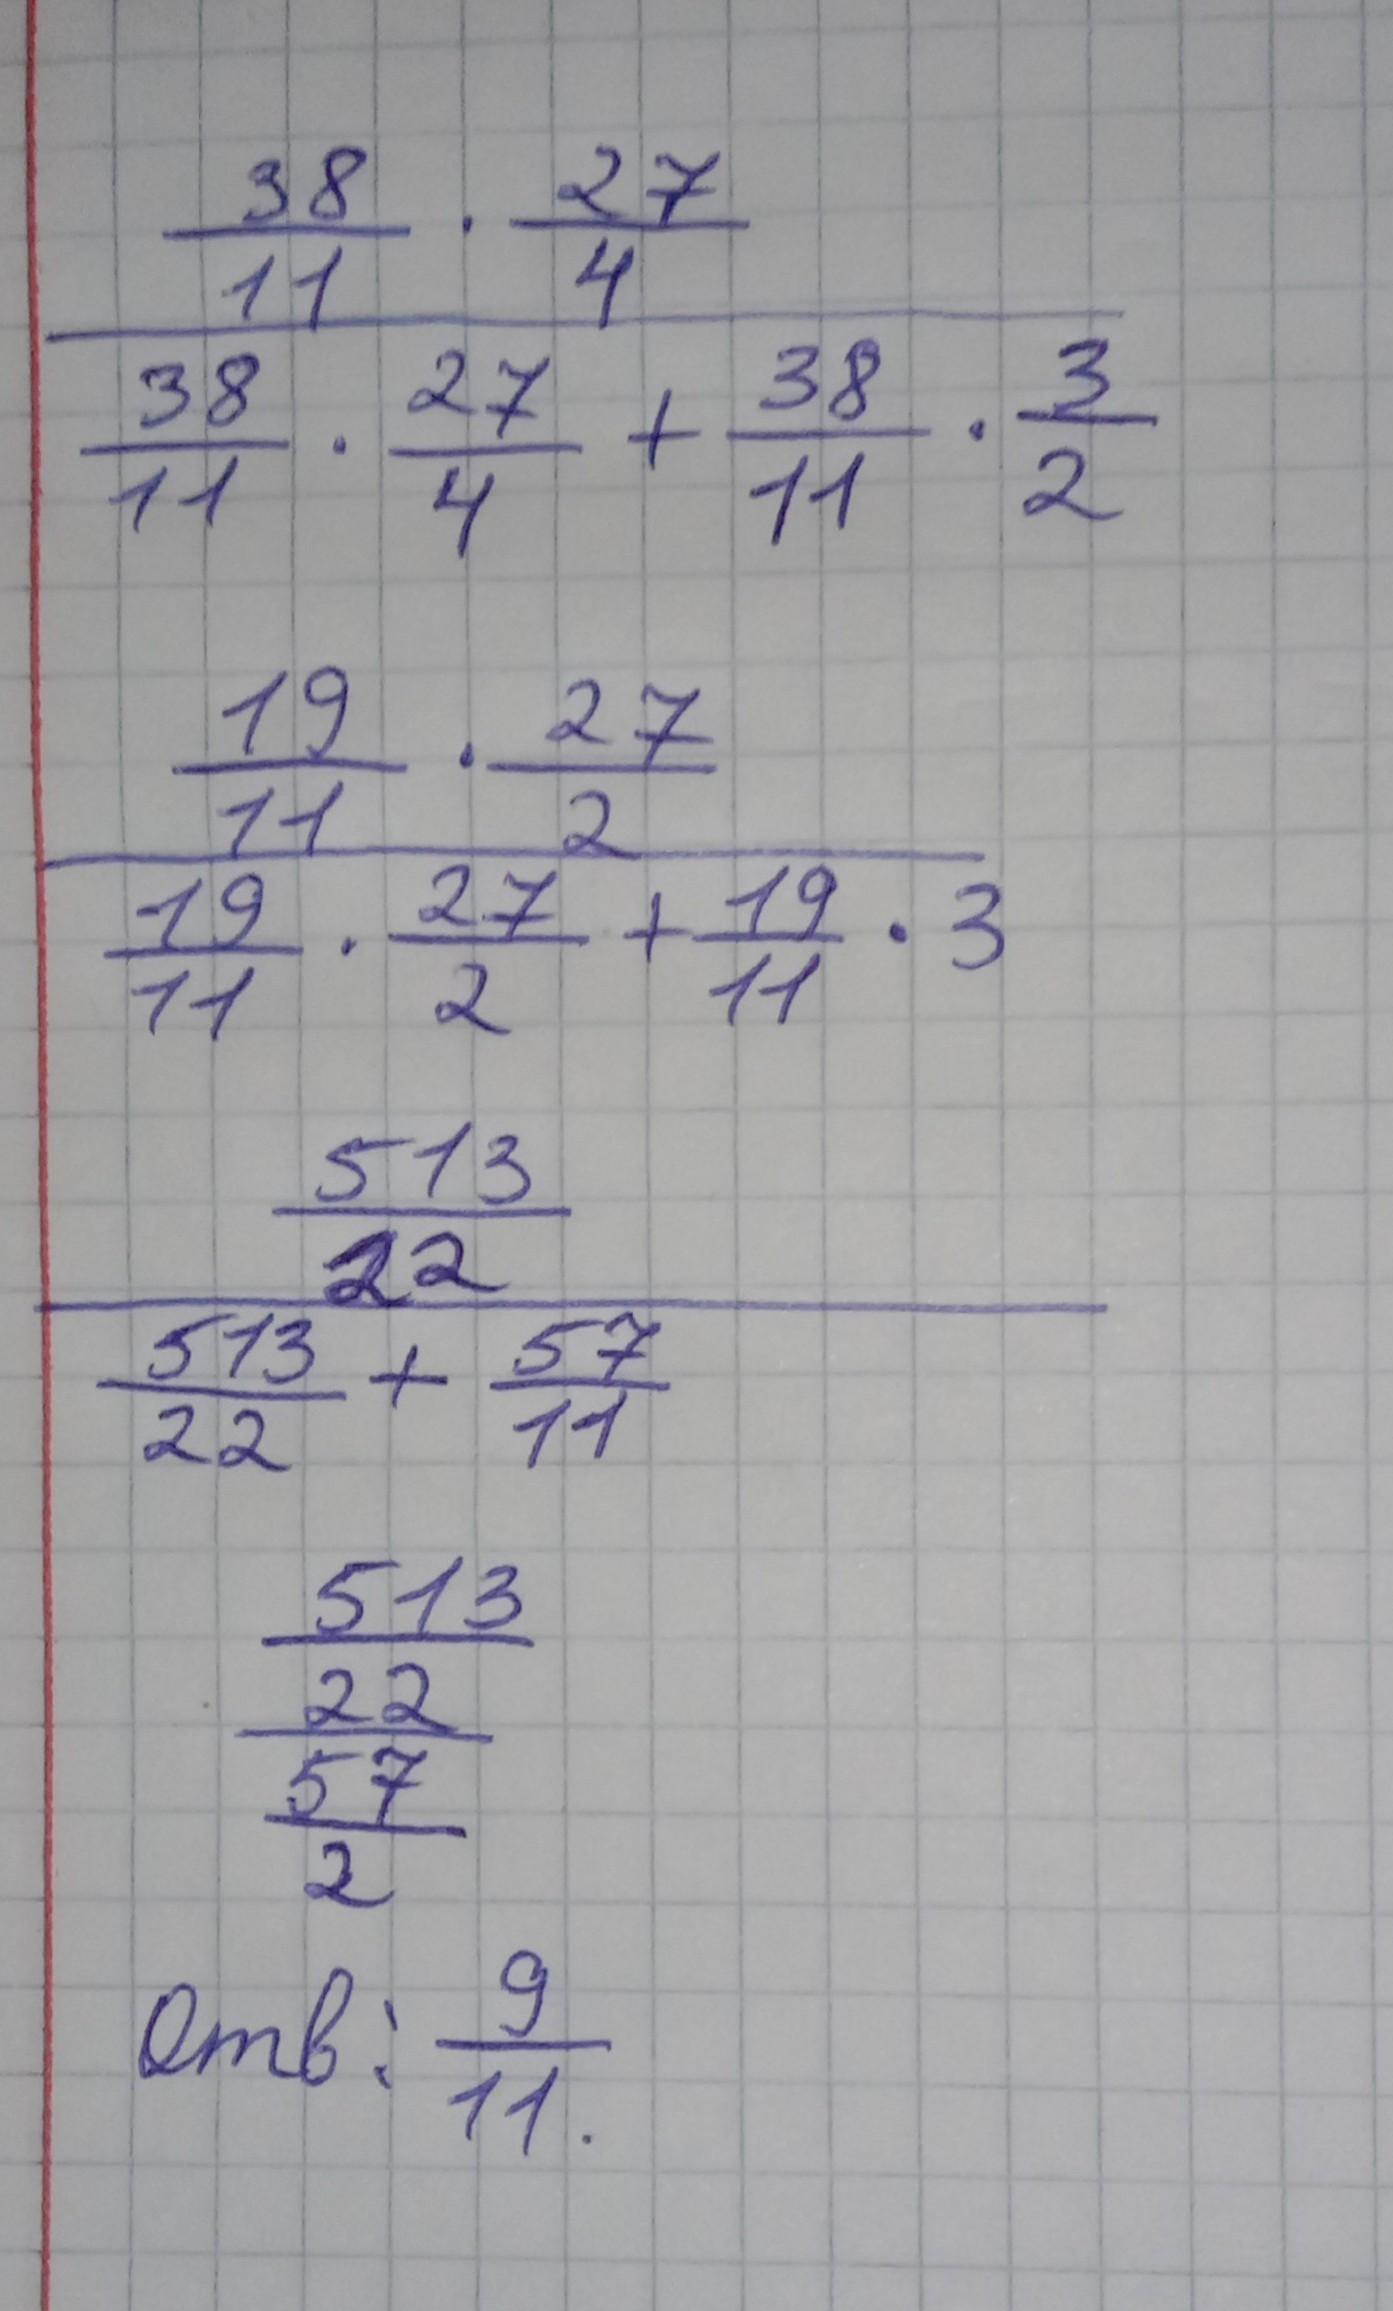 38/11 · 27/4
38/11 · 27/4 + 38/11 · 3/2
19/11 · 27/2
19/11 · 27/2 + 19/11 · 3
513/22
513/22 + 57/11
513/22
57/2
Отв: 9/11.